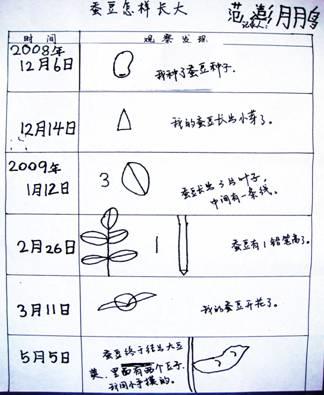 蚕豆怎样长大
记录人:
范彭月鸣
时间
观察发现
2008年
12月6日
我种了蚕豆种子.
12月14日
我的蚕豆长出小芽了。
2009年
1月12日
3
蚕豆长出3片叶子,
中间有一条线。
2月26日
1
蚕豆有1铅笔高了。
3月11日
我的蚕豆开花了。
5月5日
蚕豆终于结出大豆
荚,里面有两个豆子,
我用小手摸的。